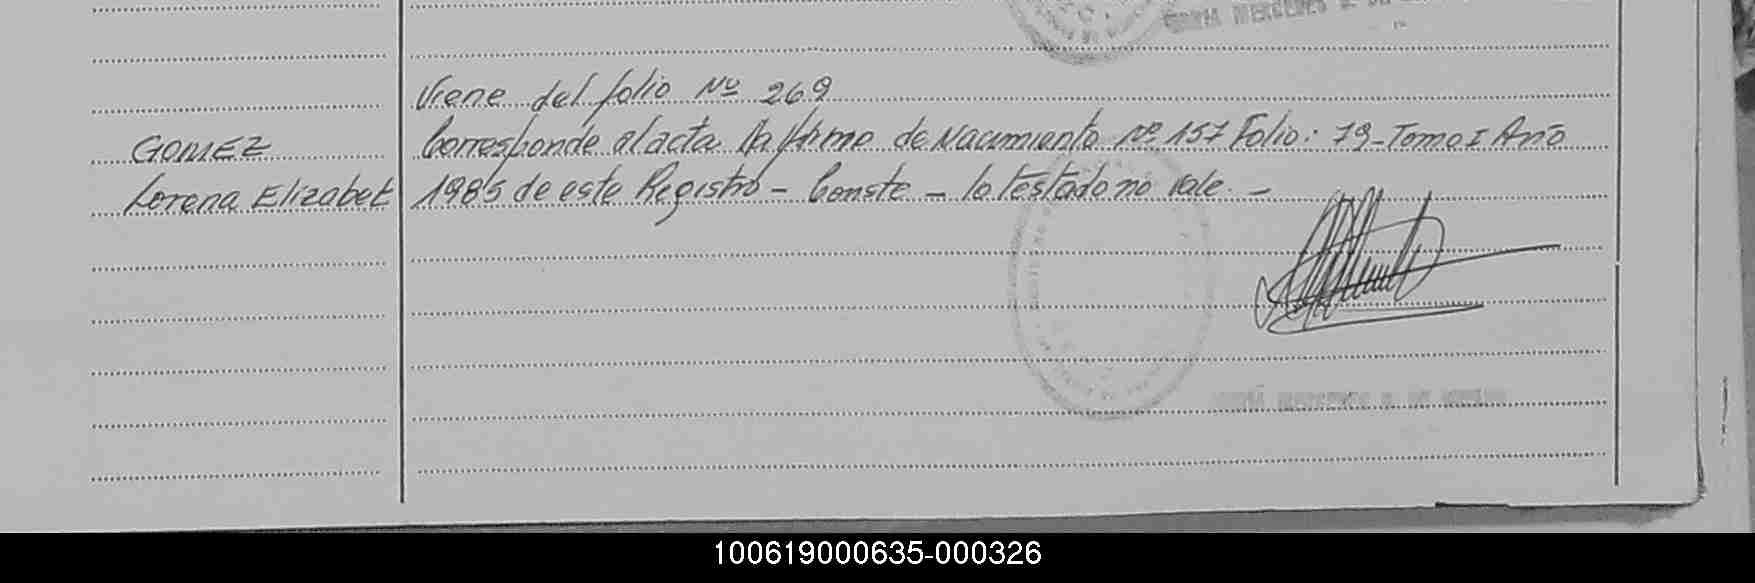 Viene del folio Nº 269
GOMEZ
Corresponde al acta de Nacimiento Nº 157 Folio: 79-Tomo I Año
Lorena Elizabet
1985 de este Registro - Conste - lo testado no vale. -
100619000635-000326